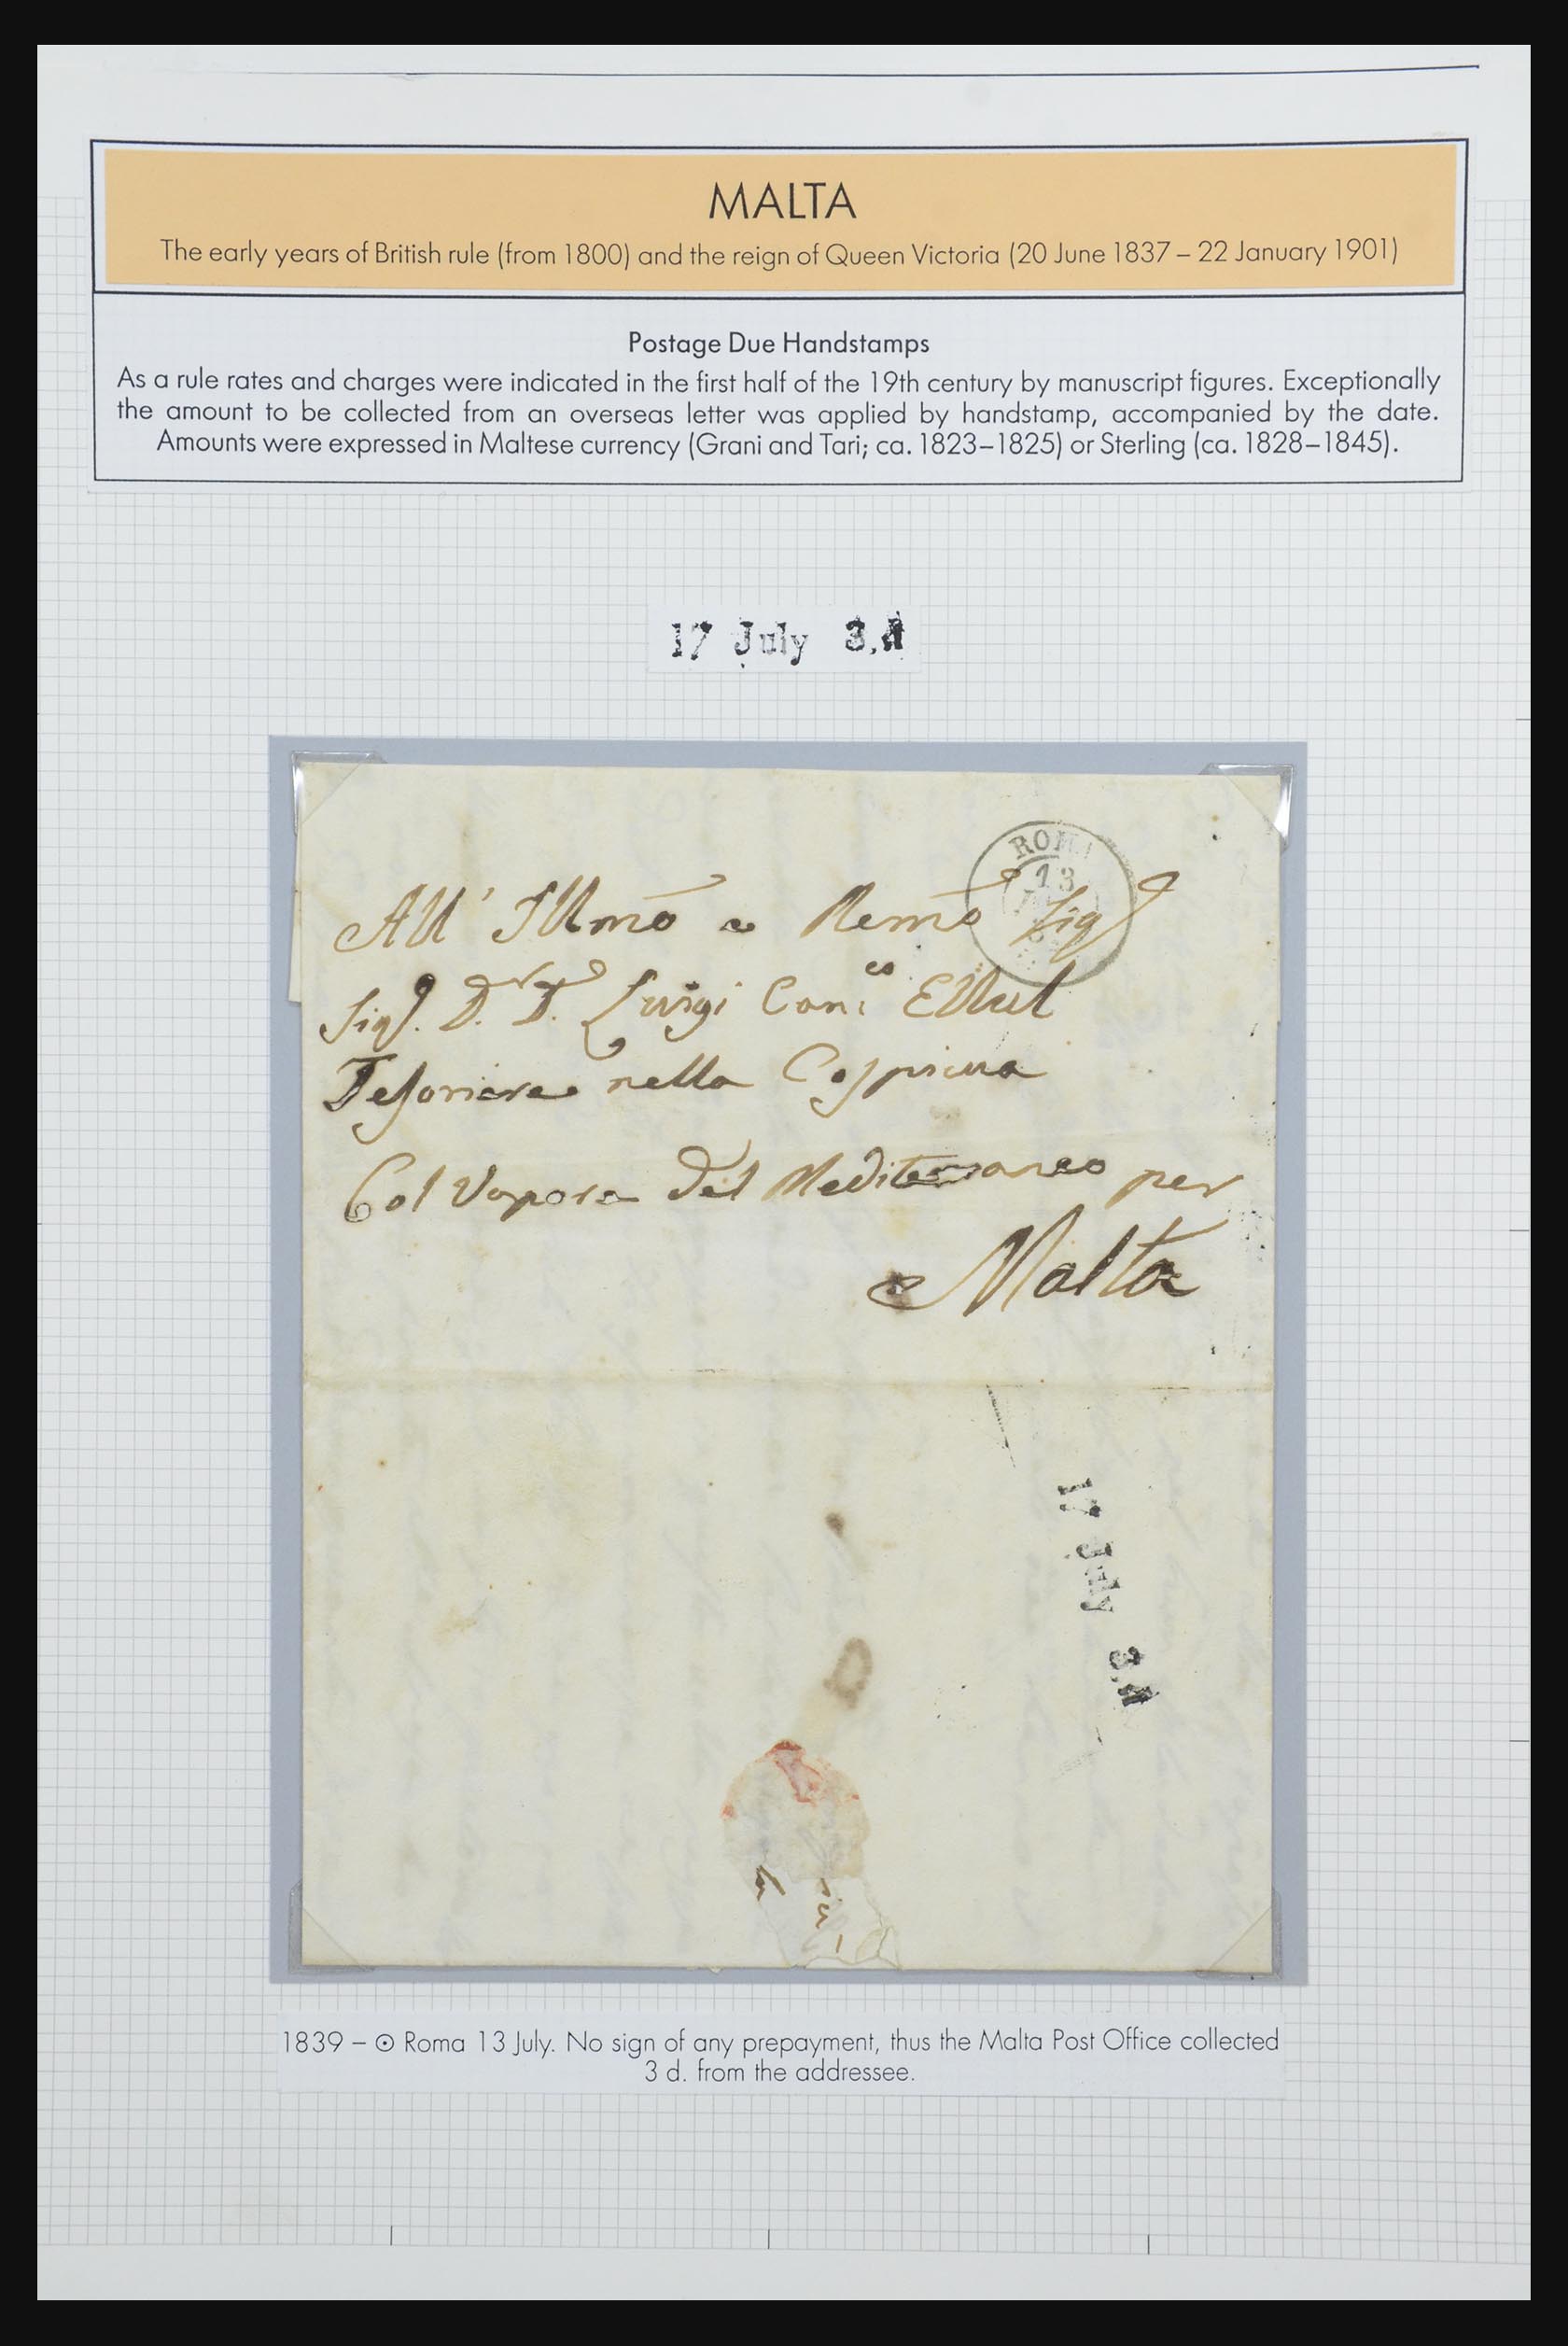 MALTA
The early years of British rule (from 1800) and the reign of Queen Victoria (20 June 1837 – 22 January 1901)
Postage Due Handstamps
As a rule rates and charges were indicated in the first half of the 19th century by manuscript figures. Exceptionally
the amount to be collected from an overseas letter was applied by handstamp, accompanied by the date.
Amounts were expressed in Maltese currency (Grani and Tari; ca. 1823–1825) or Sterling (ca. 1828–1845).
17 July 3.d
ROMA
13
All' Illmo e Remo Sigr
Sigr. D. D. Luigi Can.co Ellul
Tesoriere nella Cospicua
Col Vapore del Mediterraneo per
Malta
17 July 3.d
1839 – ⊙ Roma 13 July. No sign of any prepayment, thus the Malta Post Office collected
3 d. from the addressee.